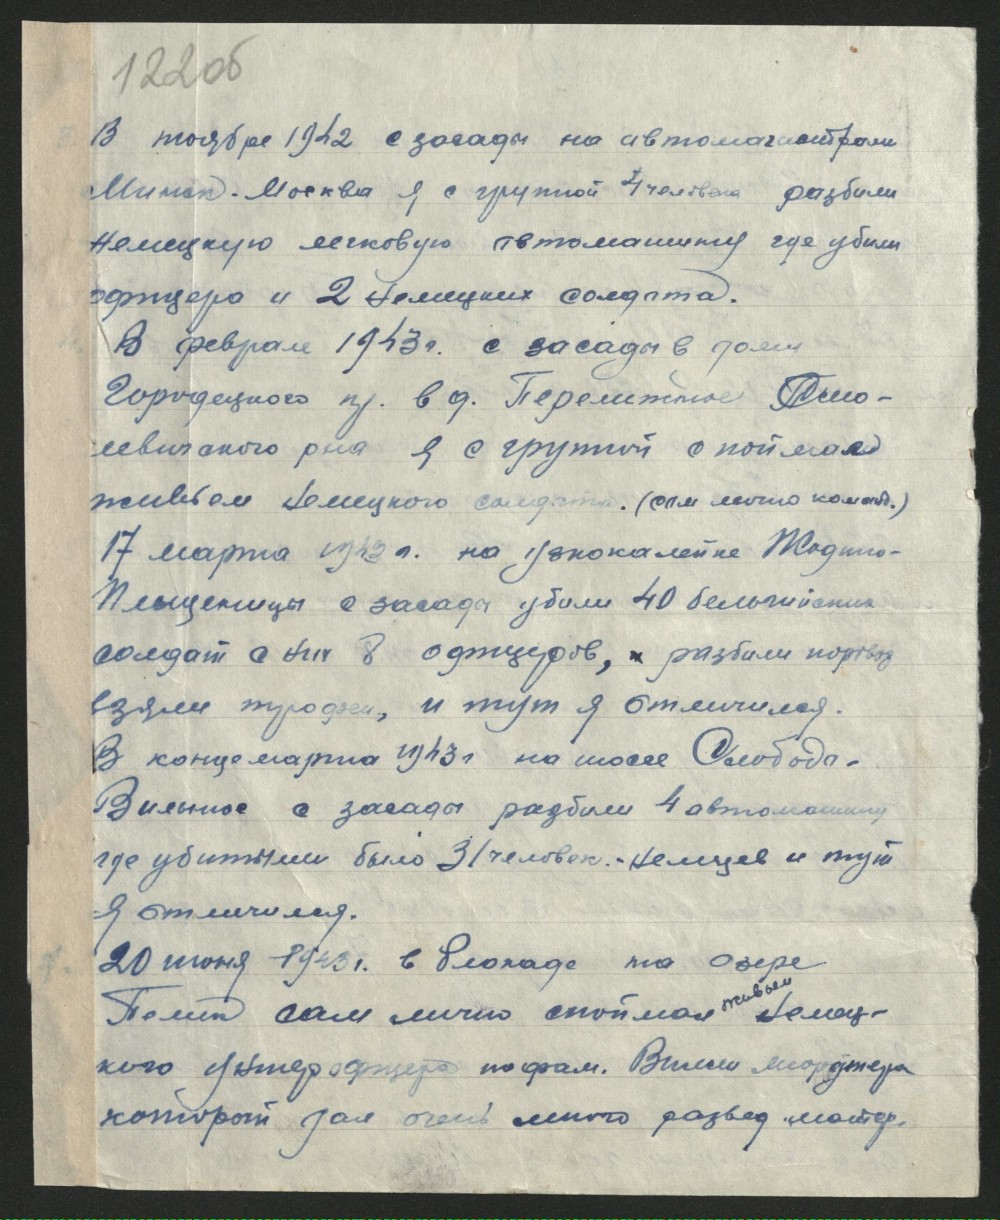 122 об
В ноябре 1942 с засады на автомагистрали
Минск - Москва я с группой 4 человека разбили
немецкую легковую автомашину где убили
офицера и 2 немецких солдата.
В феврале 1943 г. с засады в
Городецкого в д. Смо-
левичского рна я с группой споймал
живьем немецкого солдата. (сам лично команд.)
17 марта 1943 г. на узкокалейке Жодино-
Плещеницы с засады убили 40 бельгийских
солдат с них 8 офицеров, разбили поровоз
взяли трофеи, и тут я отличился.
В конце марта 1943 г на шоссе Слобода-
с засады разбили 4 автомашины
где убитыми было 31 человек. - немцев и тут
я отличился.
20 июня 1943 г. в блокаде на озере
Пелик сам лично споймал живьем немец-
кого унтерофицера по фам.
который дал очень много развед. матер.